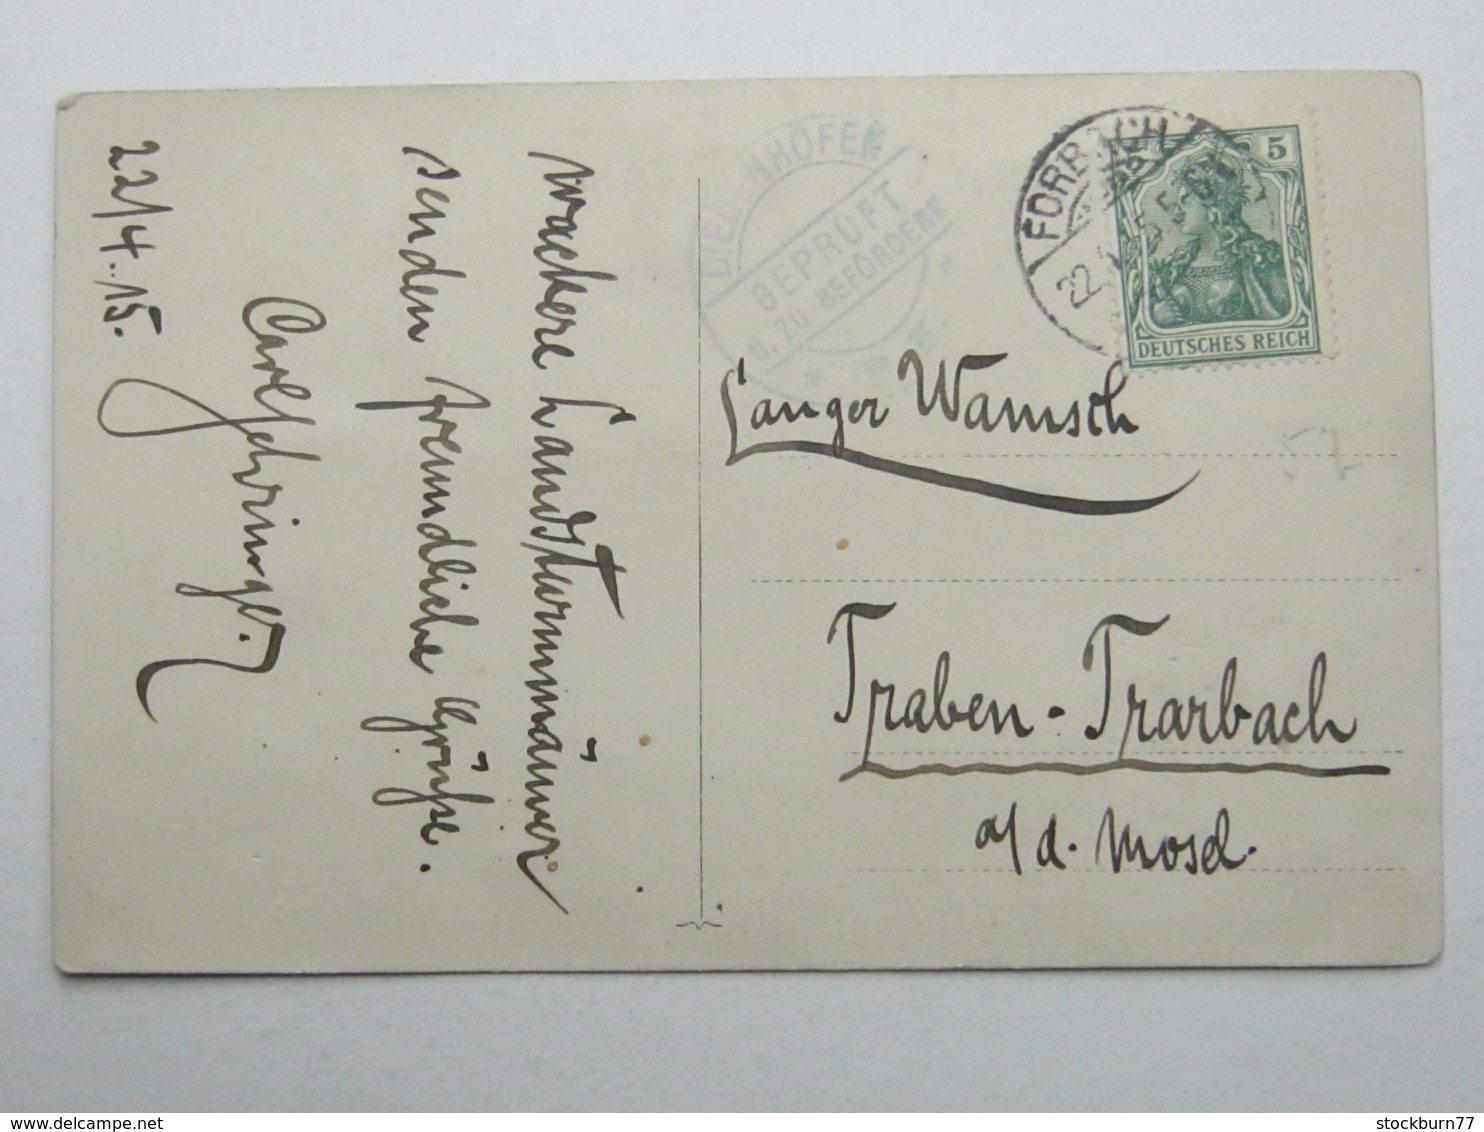 22/4.15.
Wackere Landsturmmänner
senden freundliche Grüsse.
Carl
DIEDENHOFEN
GEPRÜFT
U. ZU BEFÖRDERN
* P.K. *
FORBACH
22.4.15
5
DEUTSCHES REICH
Sanger Wamsch
57
Traben-Trarbach
a/d. Mosel.
delcampe.net
stockburn77